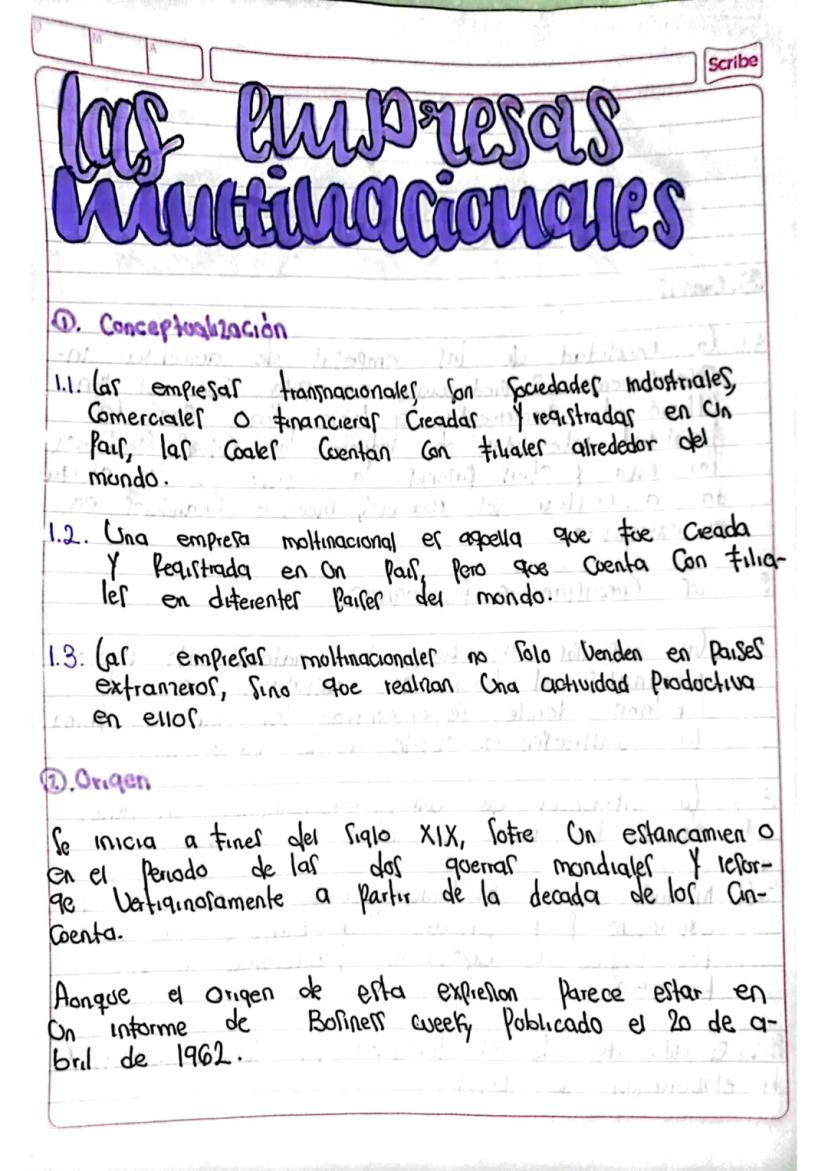 D M A
Scribe
las empresas
multinacionales
①. Conceptualización
1.1. Las empresas transnacionales, son sociedades industriales,
Comerciales o financieras Creadas y registradas en un
País, las cuales cuentan con filiales alrededor del
mundo.
1.2. Una empresa multinacional es aquella que fue creada
Y Registrada en un País, Pero que Cuenta Con filia-
les en diferentes Países del mundo.
1.3. Las empresas multinacionales no solo Venden en Países
extranzeros, Sino que realizan Una actividad Productiva
en ellos
②. Origen
Se inicia a fines del Siglo XIX, Sufre Un estancamien o
en el Periodo de las dos guerras mundiales Y resur-
ge Vertiginosamente a Partir de la decada de los Cin-
Cuenta.
Aunque el Origen de esta expresion Parece estar en
Un informe de Business Weeky Publicado el 20 de a-
bril de 1962.